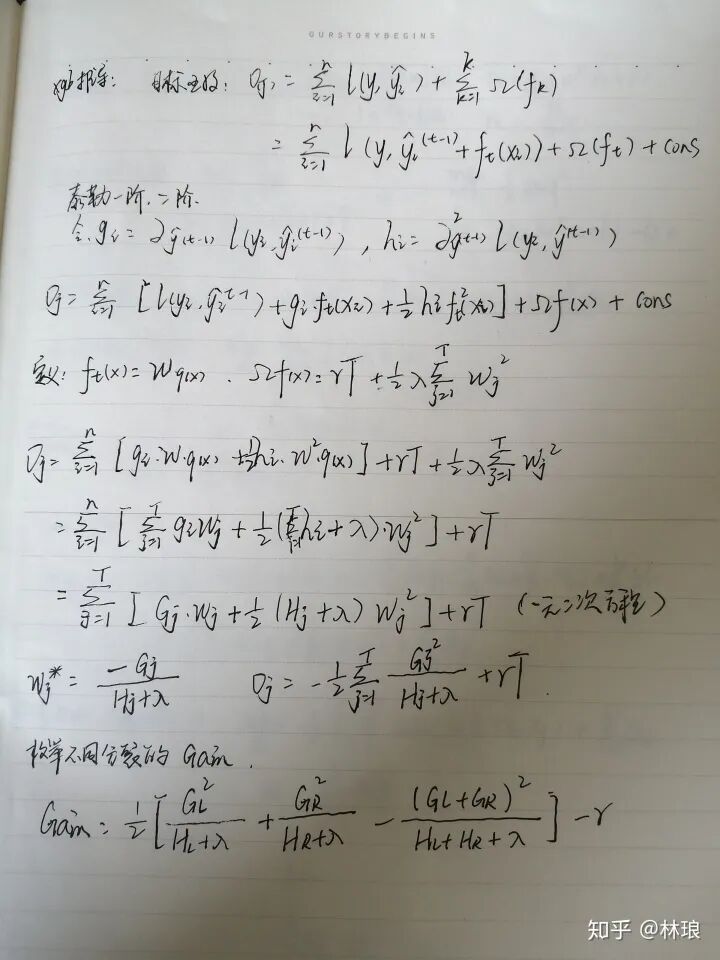 OURSTORYBEGINS
xgb推导: 目标函数: Obj = \sum_{i=1}^{n} l(y, \hat{y}_i) + \sum_{k=1}^{k} Ω(f_k)
= \sum_{i=1}^{n} l(y, \hat{y}_i^{(t-1)} + f_t(x_i)) + Ω(f_t) + cons
泰勒一阶, 二阶.
令, g_i = ∂_{\hat{y}^{(t-1)}} l(y_i, \hat{y}_i^{(t-1)}), h_i = ∂^2_{\hat{y}^{(t-1)}} l(y_i, \hat{y}^{(t-1)})
Oj = \sum_{i=1}^{n} [l(y_i, \hat{y}_i^{t-1}) + g_i f_t(x_i) + \frac{1}{2} h_i f_t^2(x_i)] + Ωf(x) + cons
定义: f_t(x) = W_{q(x)}. Ωf(x) = rT + \frac{1}{2} λ \sum_{j=1}^{T} W_j^2
Oj = \sum_{i=1}^{n} [g_i·W·q(x) + \frac{1}{2} h_i·W^2·q(x)] + rT + \frac{1}{2} λ \sum_{j=1}^{T} W_j^2
= \sum_{i=1}^{n} [\sum_{j=1}^{T} g_i W_j + \frac{1}{2} (h_i + λ)·W_j^2] + rT
= \sum_{j=1}^{T} [G_j·W_j + \frac{1}{2} (H_j + λ) W_j^2] + rT (一元二次方程)
W_j^* = \frac{-G_j}{H_j + λ} Oj = -\frac{1}{2} \sum_{j=1}^{T} \frac{G_j^2}{H_j + λ} + rT.
枚举不同分裂的 Gain.
Gain = \frac{1}{2} [\frac{G_L^2}{H_L + λ} + \frac{G_R^2}{H_R + λ} - \frac{(G_L + G_R)^2}{H_L + H_R + λ}] - r
知乎 @林琅